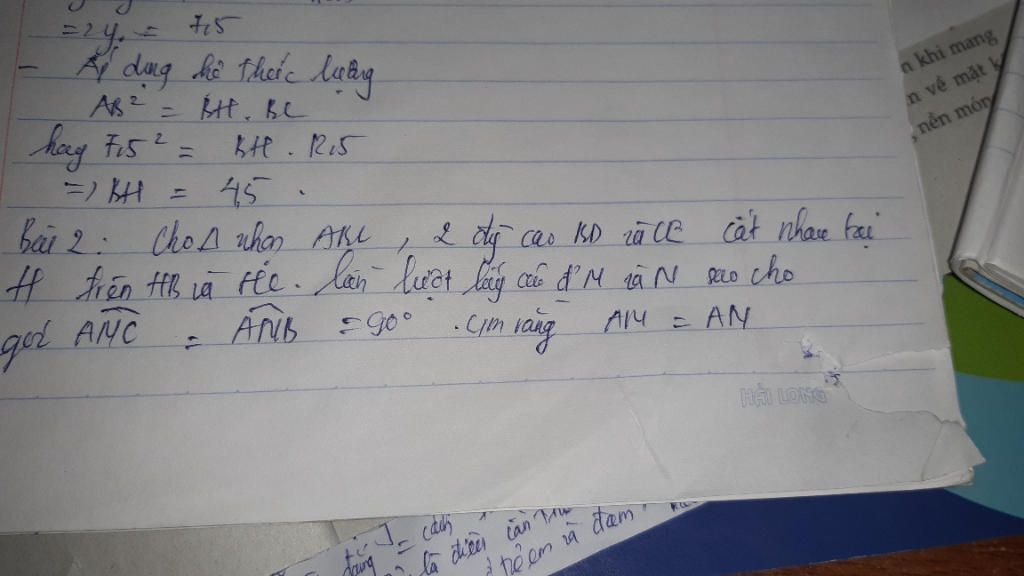 => y = 7,5
- Áp dụng hê thức lượng
AB² = BH . BC
hay 7,5² = BH . 12,5
=> BH = 4,5 .
Bài 2 : Cho Δ nhọn ABC , 2 đg cao BD và CE cắt nhau tại
H trên HB và HC . Lần lượt lấy các đ' M và N sao cho
góc AMC = ANB = 90° . Cm rằng AM = AN
HẢI LONG
n khi mang
n về mặt k
, nền món
= cách
là điều cần
và đam